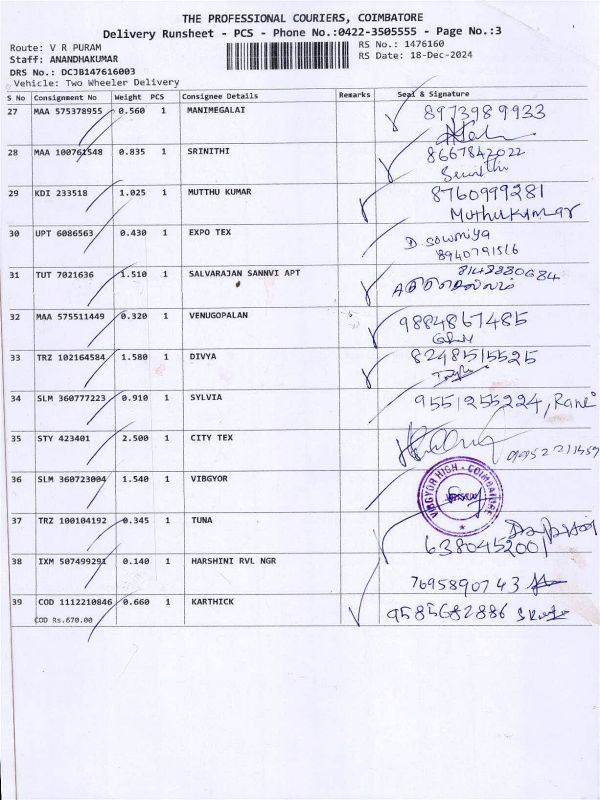 THE PROFESSIONAL COURIERS, COIMBATORE
Delivery Runsheet - PCS - Phone No.:0422-3505555 - Page No.:3
Route: V R PURAM
RS No.: 1476160
Staff: ANANDHAKUMAR
RS Date: 18-Dec-2024
DRS No.: DCJB147616003
Vehicle: Two Wheeler Delivery
S No Consignment No Weight PCS Consignee Details Remarks Seal & Signature
27 MAA 575378955 0.560 1 MANIMEGALAI 8973989933
28 MAA 100761548 0.835 1 SRINITHI 8667842022
Srinithi
29 KDI 233518 1.025 1 MUTTHU KUMAR 8760999281
Muthukumar
30 UPT 6086563 0.430 1 EXPO TEX D Sowmiya
8940791516
31 TUT 7021636 1.510 1 SALVARAJAN SANNVI APT 8148880684
32 MAA 575511449 0.320 1 VENUGOPALAN 9884867485
33 TRZ 102164584 1.580 1 DIVYA 8248515525
34 SLM 360777223 0.910 1 SYLVIA 9551255224, Rani
35 STY 423401 2.500 1 CITY TEX 9952211459
36 SLM 360723004 1.540 1 VIBGYOR VIBGYOR HIGH - COIMBATORE
37 TRZ 100104192 0.345 1 TUNA
6380452001
38 IXM 507499291 0.140 1 HARSHINI RVL NGR 7695890743
39 COD 1112210846 0.660 1 KARTHICK 9585682886
COD Rs.670.00